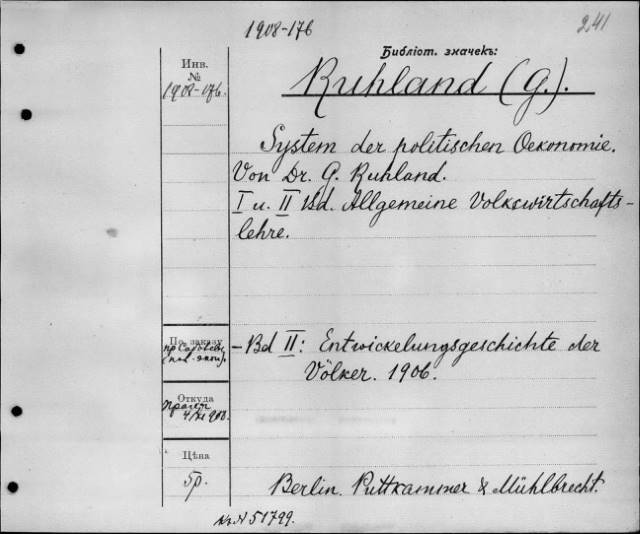 1908-176
2,41
Библіот. значекъ:
Инв.
№
1908-176.
Ruhland (G.).
System der politischen Oekonomie.
Von Dr. G. Ruhland.
I u. II Bd. Allgemeine Volkswirtschafts-
lehre.
По заказу
- Bd II: Entwickelungsgeschichte der
Völker. 1906.
Откуда
Цѣна
5р.
Berlin. Puttkammer & Mühlbrecht.
51799.